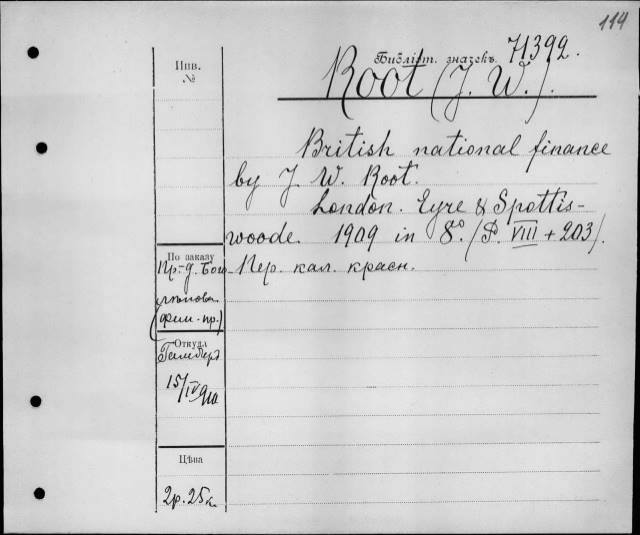 114
Инв.
№
Библіот. значекъ 71392.
Root (J. W.).
British national finance
by J. W. Root.
London. Eyre & Spottis-
woode. 1909 in 8°. (P. VIII + 203).
По заказу
Пр.-д. Бого-
лѣпова
(фин.-пр.)
Пер. кал. красн.
Откуда
15/IV 910
Цѣна
2р. 25к.